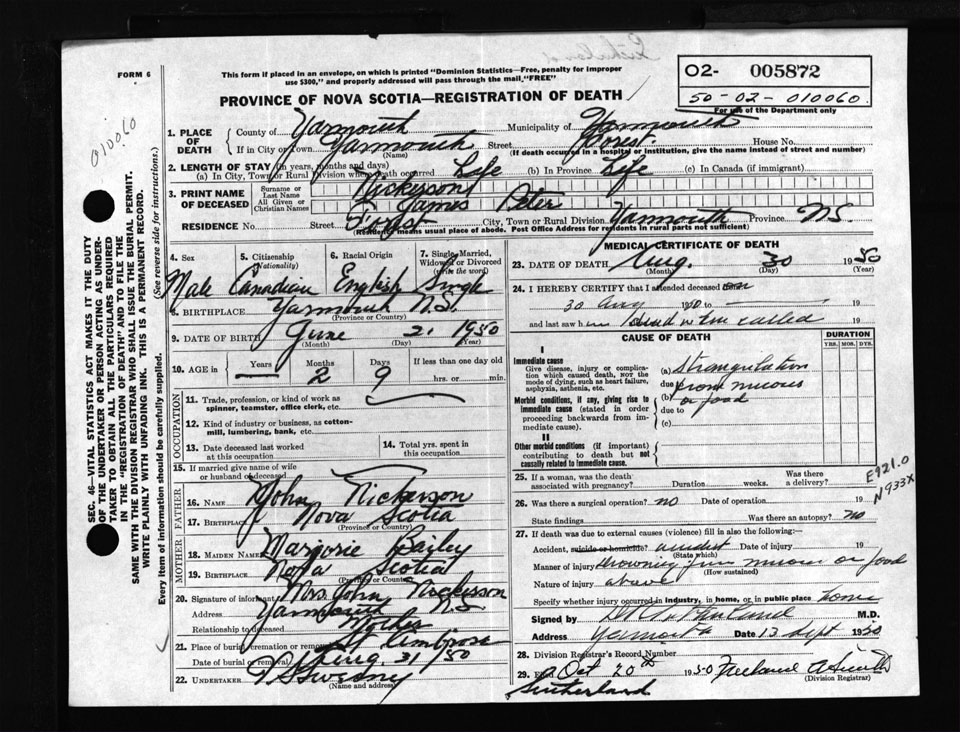 FORM 6
This form if placed in an envelope, on which is printed "Dominion Statistics—Free, penalty for improper
use $300," and properly addressed will pass through the mail "FREE"
O2- 005872
50-02-010060.
For use of the Department only
PROVINCE OF NOVA SCOTIA—REGISTRATION OF DEATH
010060
SEC. 46—VITAL STATISTICS ACT MAKES IT THE DUTY
OF THE UNDERTAKER OR PERSON ACTING AS UNDER-
TAKER TO OBTAIN ALL THE PARTICULARS REQUIRED
IN THE "REGISTRATION OF DEATH" AND TO FILE THE
SAME WITH THE DIVISION REGISTRAR WHO SHALL ISSUE THE BURIAL PERMIT.
WRITE PLAINLY WITH UNFADING INK. THIS IS A PERMANENT RECORD.
Every item of information should be carefully supplied. (See reverse side for instructions.)
1. PLACE OF DEATH County of Yarmouth Municipality of Yarmouth
If in City or Town Yarmouth Street Forest House No.
(Name) (If death occurred in a hospital or institution, give the name instead of street and number)
2. LENGTH OF STAY (in years, months and days)
(a) In City, Town or Rural Division where death occurred Life (b) In Province Life (c) In Canada (if immigrant)
3. PRINT NAME OF DECEASED Surname or Last Name Nickerson
All Given or Christian Names James Peter
RESIDENCE No. Street Forest City, Town or Rural Division Yarmouth Province N.S.
(Residence means usual place of abode. Post Office Address for residents in rural parts not sufficient)
4. Sex 5. Citizenship (Nationality) 6. Racial Origin 7. Single, Married, Widowed or Divorced (write the word)
Male Canadian English Single
8. BIRTHPLACE Yarmouth N.S.
(Province or Country)
9. DATE OF BIRTH June 21 1950
(Month) (Day) (Year)
10. AGE in Years Months Days If less than one day old
— 2 9 hrs. or min.
OCCUPATION
11. Trade, profession, or kind of work as
spinner, teamster, office clerk, etc.
12. Kind of industry or business, as cotton-
mill, lumbering, bank, etc.
13. Date deceased last worked
at this occupation
14. Total yrs. spent in
this occupation
15. If married give name of wife
or husband of deceased
FATHER
16. NAME John Nickerson
17. BIRTHPLACE Nova Scotia
(Province or Country)
MOTHER
18. MAIDEN NAME Marjorie Bailey
19. BIRTHPLACE Nova Scotia
(Province or Country)
20. Signature of informant Mrs. John Nickerson
Address Yarmouth N.S.
Relationship to deceased Mother
21. Place of burial, cremation or removal St Ambrose
Date of burial or removal Aug. 31/50
22. UNDERTAKER V S Sweeny
(Name and address)
MEDICAL CERTIFICATE OF DEATH
23. DATE OF DEATH Aug. 30 1950
(Month) (Day) (Year)
24. I HEREBY CERTIFY that I attended deceased on
30 Aug 1950 to — 19
and last saw h dead when called 19
CAUSE OF DEATH
DURATION
YRS. MOS. DYS.
I
Immediate cause
Give disease, injury or complica-
tion which caused death, not the
mode of dying, such as heart failure,
asphyxia, asthenia, etc.
(a) Strangulation
due to from mucous
Morbid conditions, if any, giving rise to
immediate cause (stated in order
proceeding backwards from im-
mediate cause).
(b) or food
due to
(c)
II
Other morbid conditions (if important)
contributing to death but not
causally related to immediate cause.
25. If a woman, was the death
associated with pregnancy? Duration weeks. Was there
a delivery?
E921.0
N933X
26. Was there a surgical operation? no Date of operation 19
State findings Was there an autopsy? no
27. If death was due to external causes (violence) fill in also the following:—
Accident, suicide or homicide? accident Date of injury 19
(State which)
Manner of injury drowning from mucous or food
(How sustained)
Nature of injury above
Specify whether injury occurred in industry, in home, or in public place home
Signed by M.D.
Address Yarmouth Date 13 Sept 1950
28. Division Registrar's Record Number
29. Oct 20th 1950 Freeland A Smith
(Division Registrar)
Sutherland